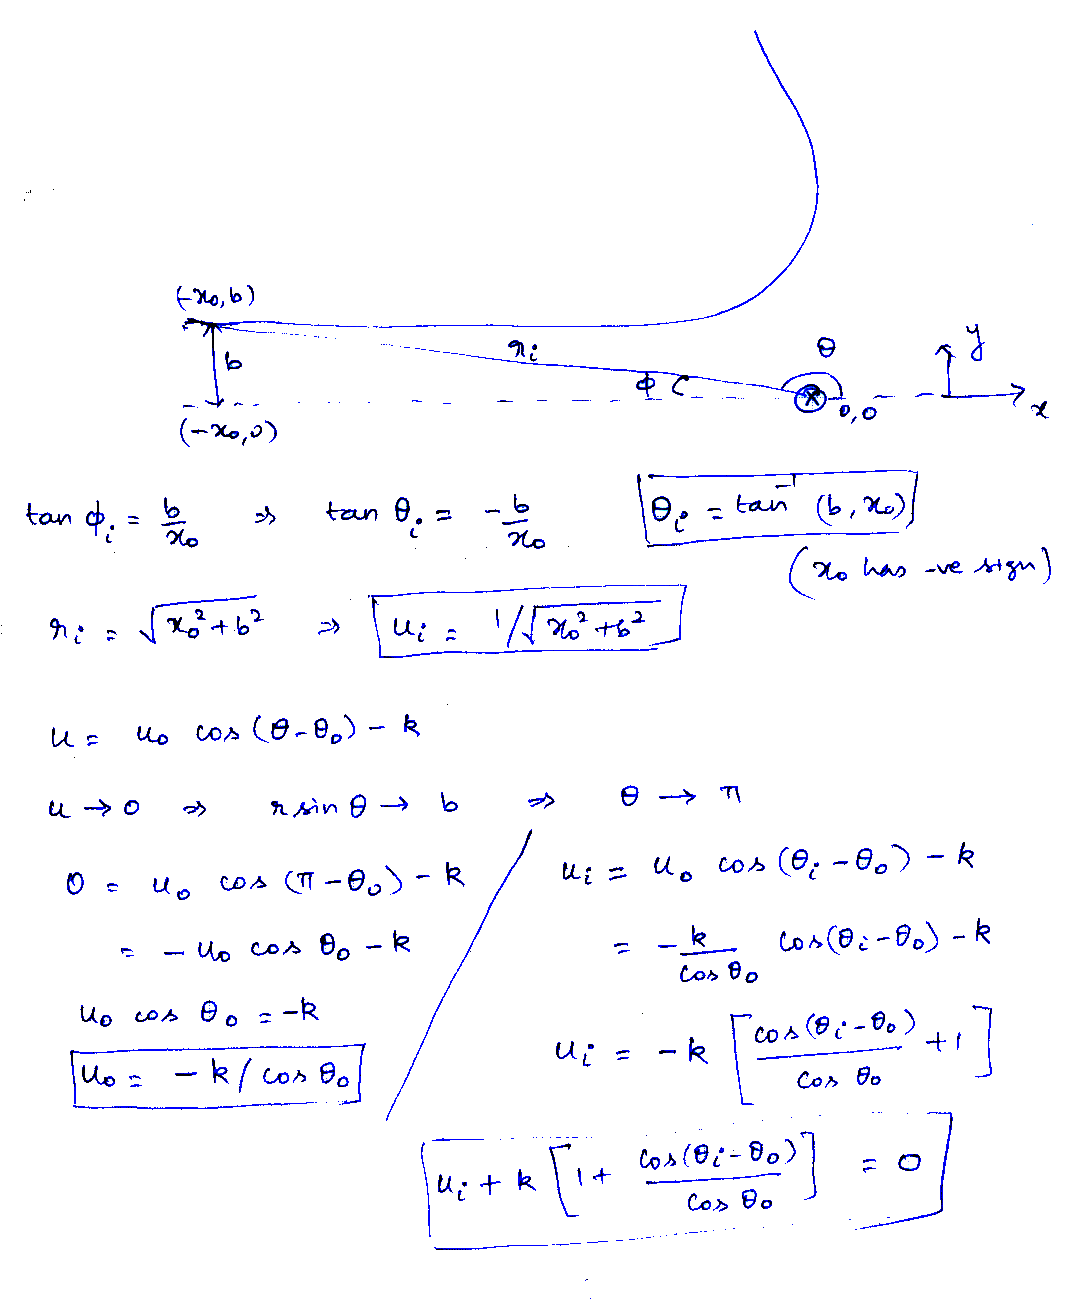 (-x₀, b)
b
r_i
ϕ
θ
y
x
0,0
(-x₀, 0)
tan ϕ_i = b/x₀ ⇒ tan θ_i = - b/x₀ θ_i = tan⁻¹ (b, x₀)
(x₀ has -ve sign)
r_i = √(x₀² + b²) ⇒ u_i = 1/√(x₀² + b²)
u = u₀ cos (θ - θ₀) - k
u → 0 ⇒ r sin θ → b ⇒ θ → π
0 = u₀ cos (π - θ₀) - k
= - u₀ cos θ₀ - k
u₀ cos θ₀ = -k
u₀ = - k / cos θ₀
u_i = u₀ cos (θ_i - θ₀) - k
= - k/cos θ₀ cos (θ_i - θ₀) - k
u_i = - k [cos (θ_i - θ₀)/cos θ₀ + 1]
u_i + k [1 + cos (θ_i - θ₀)/cos θ₀] = 0